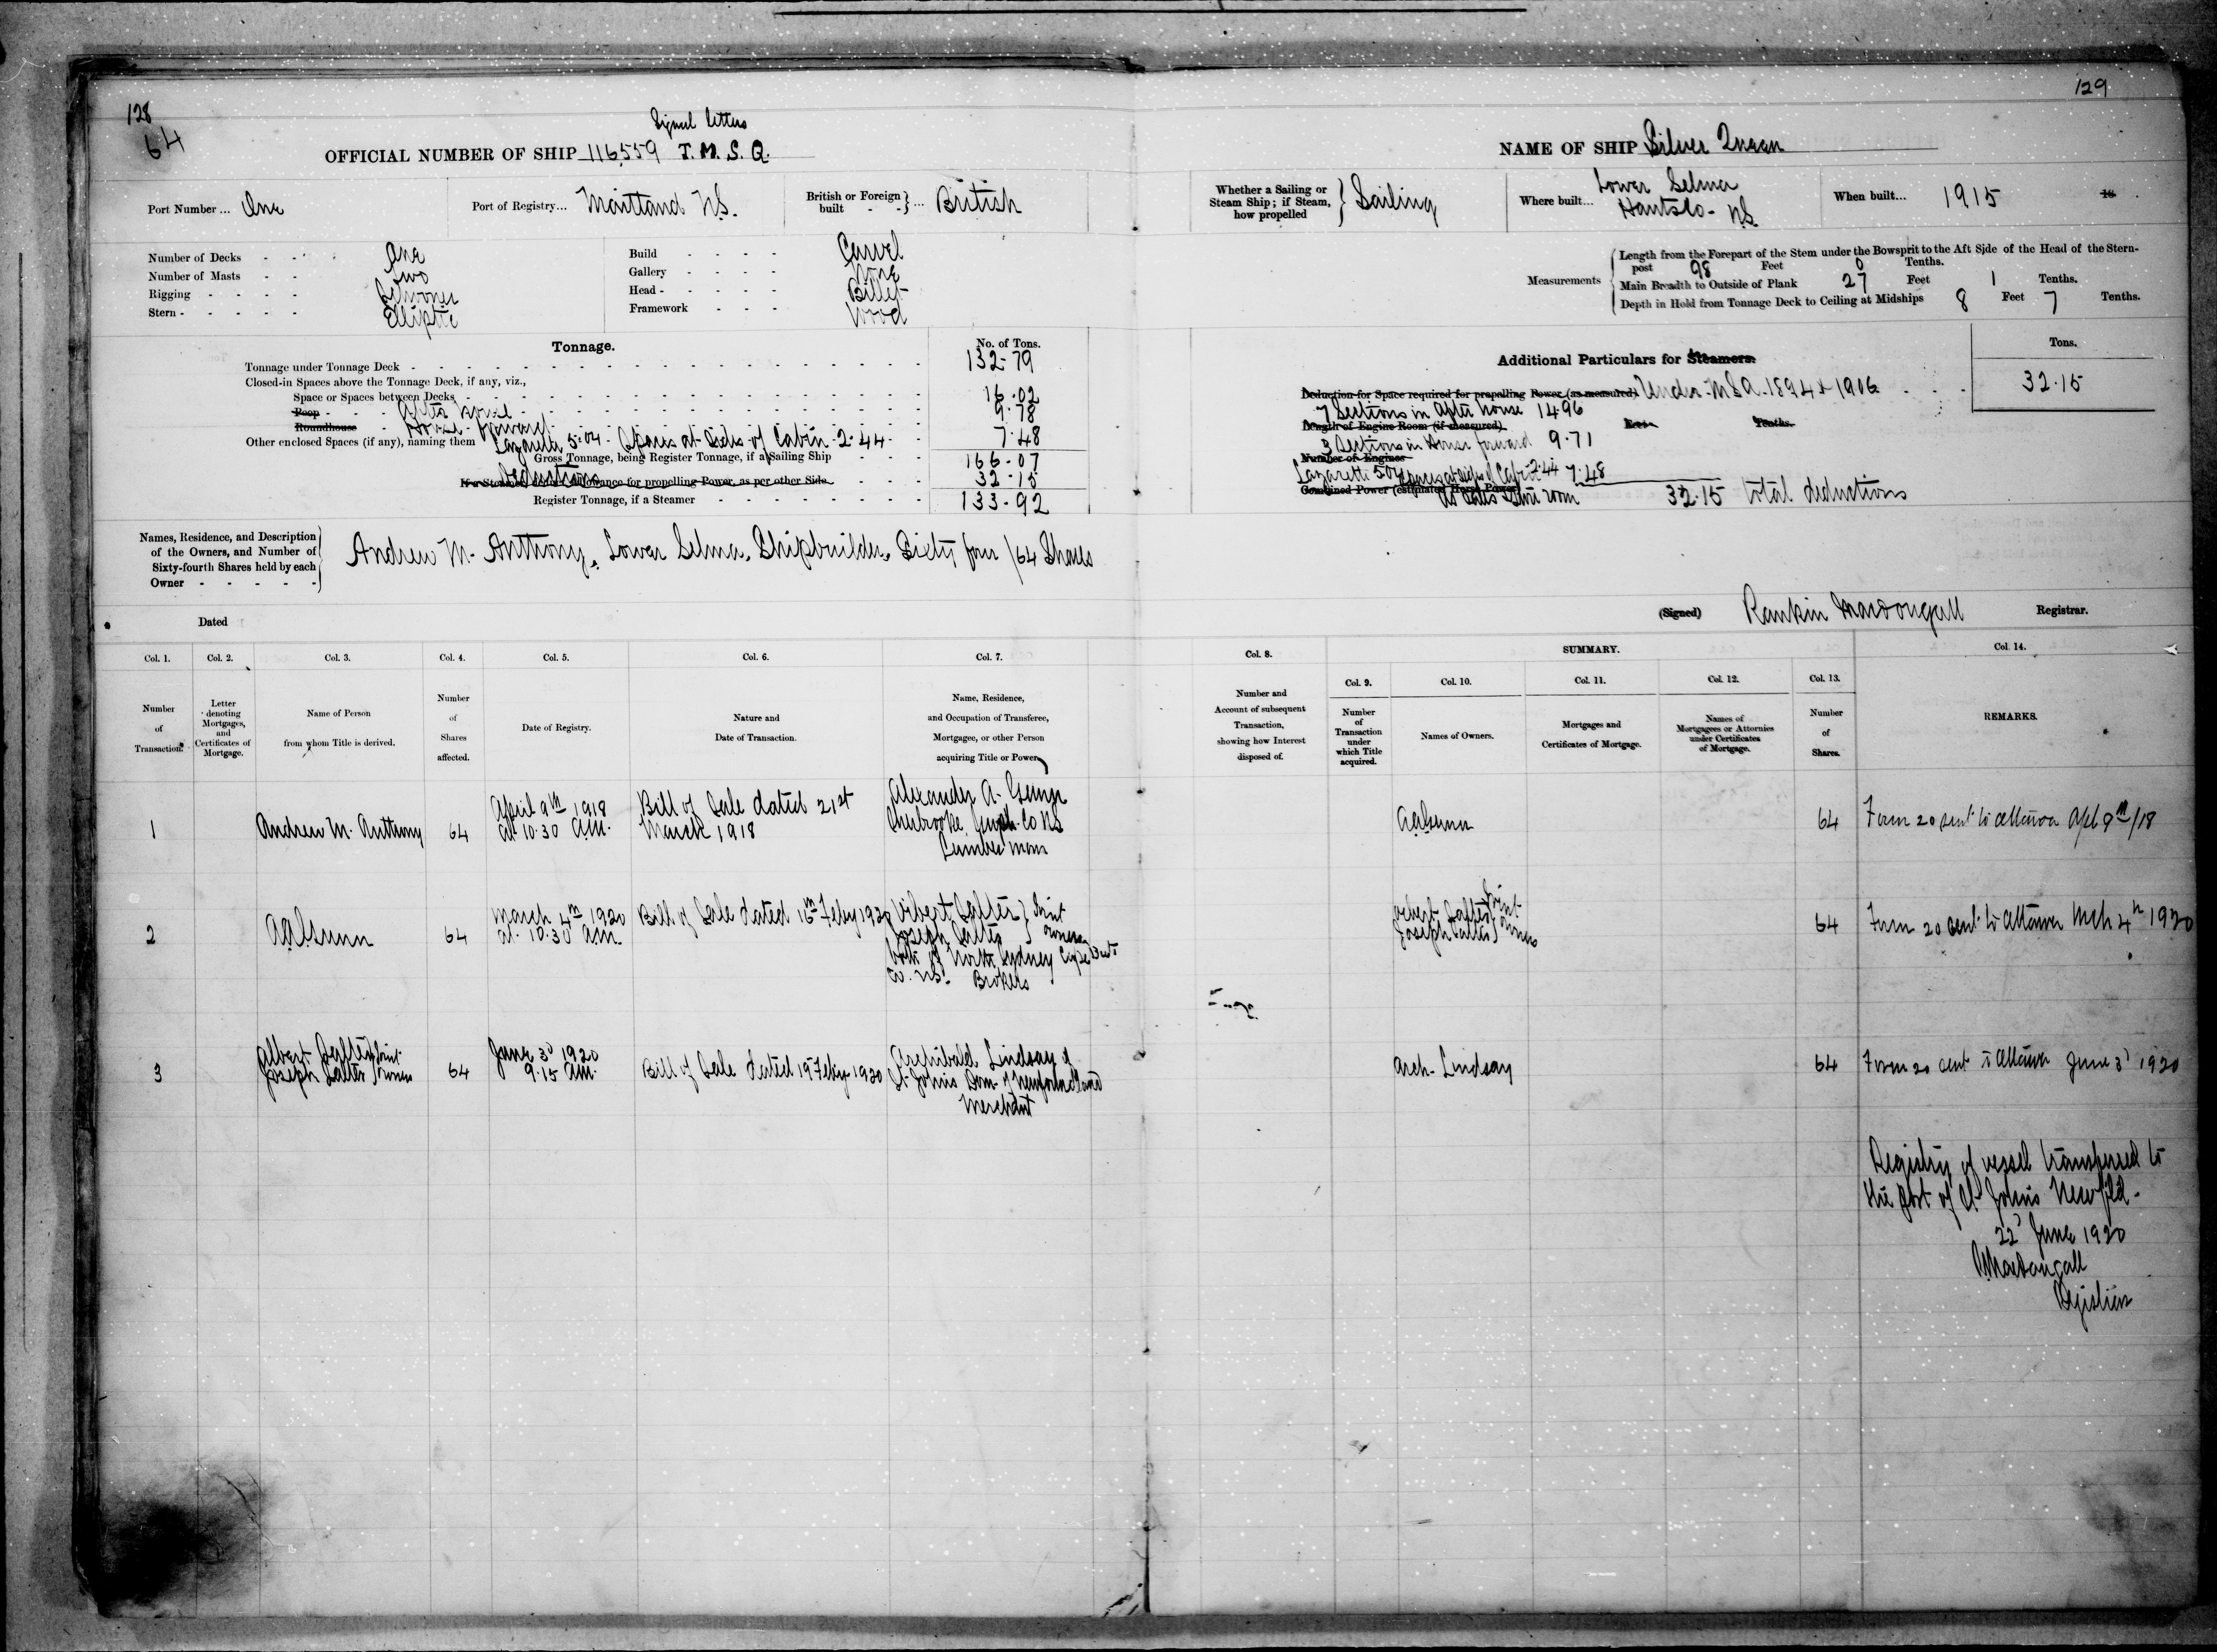 128
64
Signal letters
OFFICIAL NUMBER OF SHIP 116,559 T. M. S. Q.
Port Number ... One
Port of Registry... Maitland N.S.
British or Foreign built - - } ... British
Number of Decks - - - One
Number of Masts - - Two
Rigging - - - - Schooner
Stern - - - - - Elliptic
Build - - - - Carvel
Gallery - - - - None
Head - - - - - Billet
Framework - - - Wood
Tonnage.
No. of Tons.
Tonnage under Tonnage Deck - 132.79
Closed-in Spaces above the Tonnage Deck, if any, viz.,
Space or Spaces between Decks - 16.02
Poop - - - After House - 9.78
Roundhouse - House Forward - 7.48
Other enclosed Spaces (if any), naming them Lazarette 5.04 - Spaces at Sides of Cabin 2.44
Gross Tonnage, being Register Tonnage, if a Sailing Ship - - - 166.07
Deductions
If a Steamer, deduct Allowance for propelling Power, as per other Side - - - 32.15
Register Tonnage, if a Steamer - 133.92
Names, Residence, and Description of the Owners, and Number of Sixty-fourth Shares held by each Owner - - - - -
Andrew M. Anthony, Lower Selma, Shipbuilder, Sixty four /64 Shares
Dated
Col. 1. Col. 2. Col. 3. Col. 4. Col. 5. Col. 6. Col. 7.
Number of Transaction.
Letter denoting Mortgages, and Certificates of Mortgage.
Name of Person from whom Title is derived.
Number of Shares affected.
Date of Registry.
Nature and Date of Transaction.
Name, Residence, and Occupation of Transferee, Mortgagee, or other Person acquiring Title or Power.
1
Andrew M. Anthony
64
April 9th 1918
at 10.30 a.m.
Bill of Sale dated 21st
March 1918
Alexander A.
Sherbrooke Co NS
Lumberman
2
64
March 4th 1920
at 10.30 am
Bill of Sale dated 16th Feby 1920
Salter } Joint
Joseph Salter } owners
both of North Sydney Cape Breton
Co. N.S. Brokers
3
Albert Salter } Joint
Joseph Salter } owners
64
June 3d 1920
9.15 am.
Bill of Sale dated 19 Feby 1920
Archibald Lindsay of
St Johns Dom. of Newfoundland
Merchant
129
NAME OF SHIP Silver Queen
Whether a Sailing or Steam Ship; if Steam, how propelled } Sailing
Where built... Lower Selma
Hants Co. N.S.
When built... 1915
18
Measurements
Length from the Forepart of the Stem under the Bowsprit to the Aft Side of the Head of the Stern-
post 98 Feet 0 Tenths.
Main Breadth to Outside of Plank 27 Feet 1 Tenths.
Depth in Hold from Tonnage Deck to Ceiling at Midships 8 Feet 7 Tenths.
Additional Particulars for Steamers.
Tons.
Deduction for Space required for propelling Power (as measured) Under M S A. 1894 & 1906 - - - 32.15
7 Sections in After House 14.96
Length of Engine Room (if measured) Feet Tenths.
3 Sections in House forward 9.71
Number of Engines
Lazarette 5.04 Spaces at sides of Cabin 2.44 7.48
Combined Power (estimated Horse Power)
32.15 total deductions
(Signed) Rankin MacDougall Registrar.
Col. 8.
SUMMARY.
Col. 9. Col. 10. Col. 11. Col. 12. Col. 13. Col. 14.
Number and Account of subsequent Transaction, showing how Interest disposed of.
Number of Transaction under which Title acquired.
Names of Owners.
Mortgages and Certificates of Mortgage.
Names of Mortgagees or Attornies under Certificates of Mortgage.
Number of Shares.
REMARKS.
64 Form 20 sent to Ottawa Apl 9th/18
Salter } Joint
Joseph Salter } owners
64 Form 20 sent to Ottawa Mch 4th 1920
Arch. Lindsay
64 Form 20 sent to Ottawa June 3d 1920
Registry of vessel transferred to
the port of St Johns Newfld.
22d June 1920
R MacDougall
Registrar